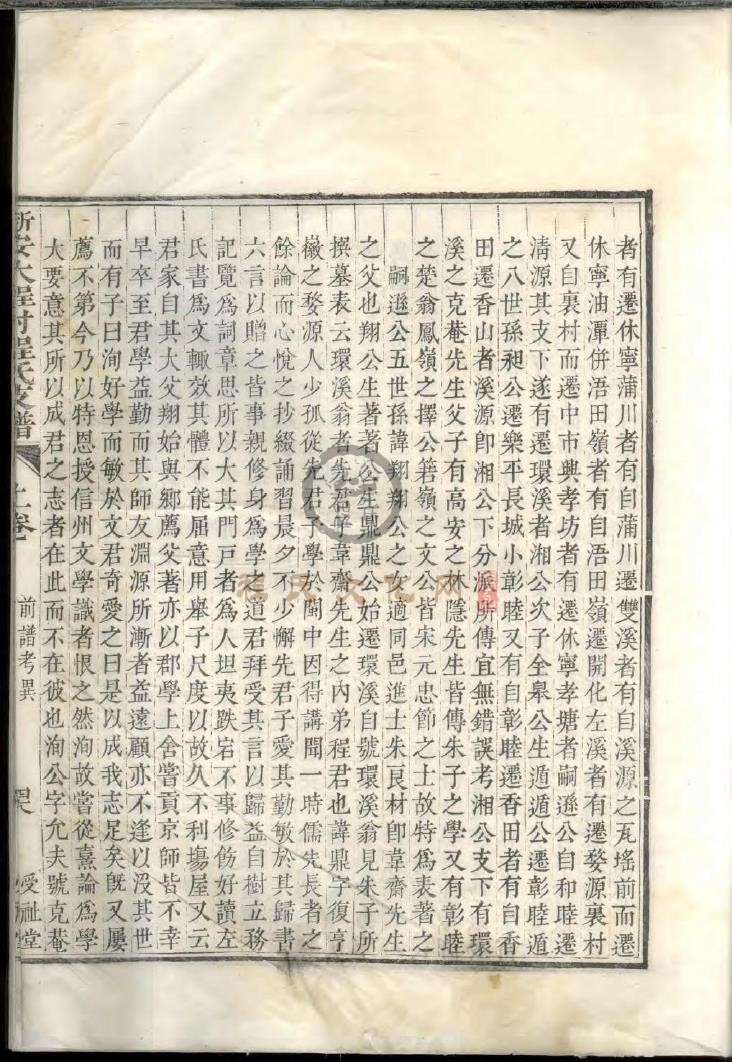 者有遷休寧蒲川者有自蒲川遷雙溪者有自溪源之瓦瑤前而遷
休寧油潭併浯田嶺者有自浯田嶺遷開化左溪者有遷婺源裏村
又自裏村而遷中市興孝坊者有遷休寧孝塘者嗣遜公自和睦遷
清源其支下遂有遷環溪者湘公次子全皋公生遁遁公遷彰睦遁
之八世孫昶公遷樂平長城小彰睦又有自彰睦遷香田者有自香
田遷香山者溪源卽湘公下分派所傳宜無錯誤考湘公支下有環
溪之克菴先生父子有高安之林隱先生皆傳朱子之學又有彰睦
之楚翁鳳嶺之擇公箬嶺之文公皆宋元忠節之士故特爲表著之
嗣遜公五世孫諱翔翔公之女適同邑進士朱良材卽韋齋先生
之父也翔公生著著公生鼎鼎公始遷環溪自號環溪翁見朱子所
撰墓表云環溪翁者先君子韋齋先生之內弟程君也諱鼎字復亨
徽之婺源人少孤從先君子學於閩中因得講聞一時儒先長者之
餘論而心悅之抄綴誦習晨夕不少懈先君子愛其勤敏於其歸書
六言以贈之皆事親修身爲學之道君拜受其言以歸益自樹立務
記覽爲詞章思所以大其門戸者爲人坦夷跌宕不事修飭好讀左
氏書爲文輙效其體不能屈意用舉子尺度以故久不利塲屋又云
君家自其大父翔始與鄉薦父著亦以郡學上舍嘗貢京師皆不幸
早卒至君學益勤而其師友淵源所漸者益遠顧亦不逢以沒其世
而有子曰洵好學而敏於文君奇愛之曰是以成我志足矣旣又屢
薦不第今乃以特恩授信州文學識者恨之然洵故嘗從熹論爲學
大要意其所以成君之志者在此而不在彼也洵公字允夫號克菴
新安大程村程氏支譜 上卷 前譜考異 受祉堂